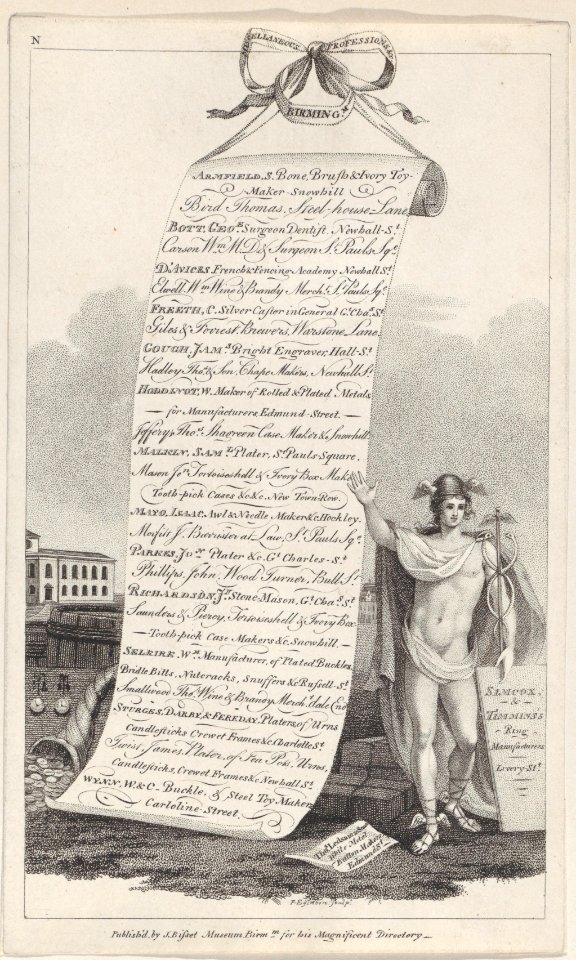 N
MISCELLANEOUS PROFESSIONS &c
BIRMINGM
ARMFIELD, S. Bone, Brush & Ivory Toy-
Maker Snowhill
Bird Thomas, Steel-house-Lane
BOTT, GEOE Surgeon Dentist, Newhall-St
Carson Wm M.D. & Surgeon St Pauls Sqe
D'AVICES, French & Fencing Academy Newhall St
Elwell, Wm Wine & Brandy Mercht St Pauls Sqe
FREETH, C. Silver Caster in General Gt Chas St
Giles & Forrest, Brewers, Warstone Lane
GOUGH, JAMS Bright Engraver, Hall-St
Hadley Thos & Son, Chape Makers, Newhall St
HODDINOT, W. Maker of Rolled & Plated Metals
— for Manufacturers, Edmund-Street. —
Jeffery, Thos Shagreen Case Maker &c Snowhill
MALKIN, SAML Plater, St Pauls Square.
Mason Jos Tortoiseshell & Ivory Box Maker
Tooth-pick Cases &c &c. New Town-Row.
MAYO, ISAAC, Awl & Needle Maker &c Hockley.
Moifist J. Barrister at Law, St Pauls Sqe
PARKES, JNO Plater &c Gt Charles-St
Phillips, John, Wood Turner, Bull St
RICHARDSON, Js Stone-Mason, Gt Chas St
Saunders & Piercy, Tortoiseshell & Ivory Box
— Tooth-pick Case Makers &c Snowhill —
SELKIRE, Wm Manufacturer of Plated Buckles
Bridle Bitts, Nutcracks, Snuffers &c Russell-St
Smallwood Thos Wine & Brandy Mercht dale End
STURGES, DARBY, & FEREDAY, Platers of Urns
Candlesticks Crewet Frames &c Charlotte St
Twist, James, Plater, of Tea Pots, Urns,
Candlesticks, Crewet Frames &c Newhall St
WYNN, W. & C. Buckle, & Steel Toy Maker
Carloline-Street.
SIMCOX,
&
TIMMINS's
Ring
Manufacturers
Livery-St
Thos Ledsam
White Metal
Button Maker
Edmund St
F. Eginton sculpt
Publish'd by J. Bisset Museum Birmm for his Magnificent Directory